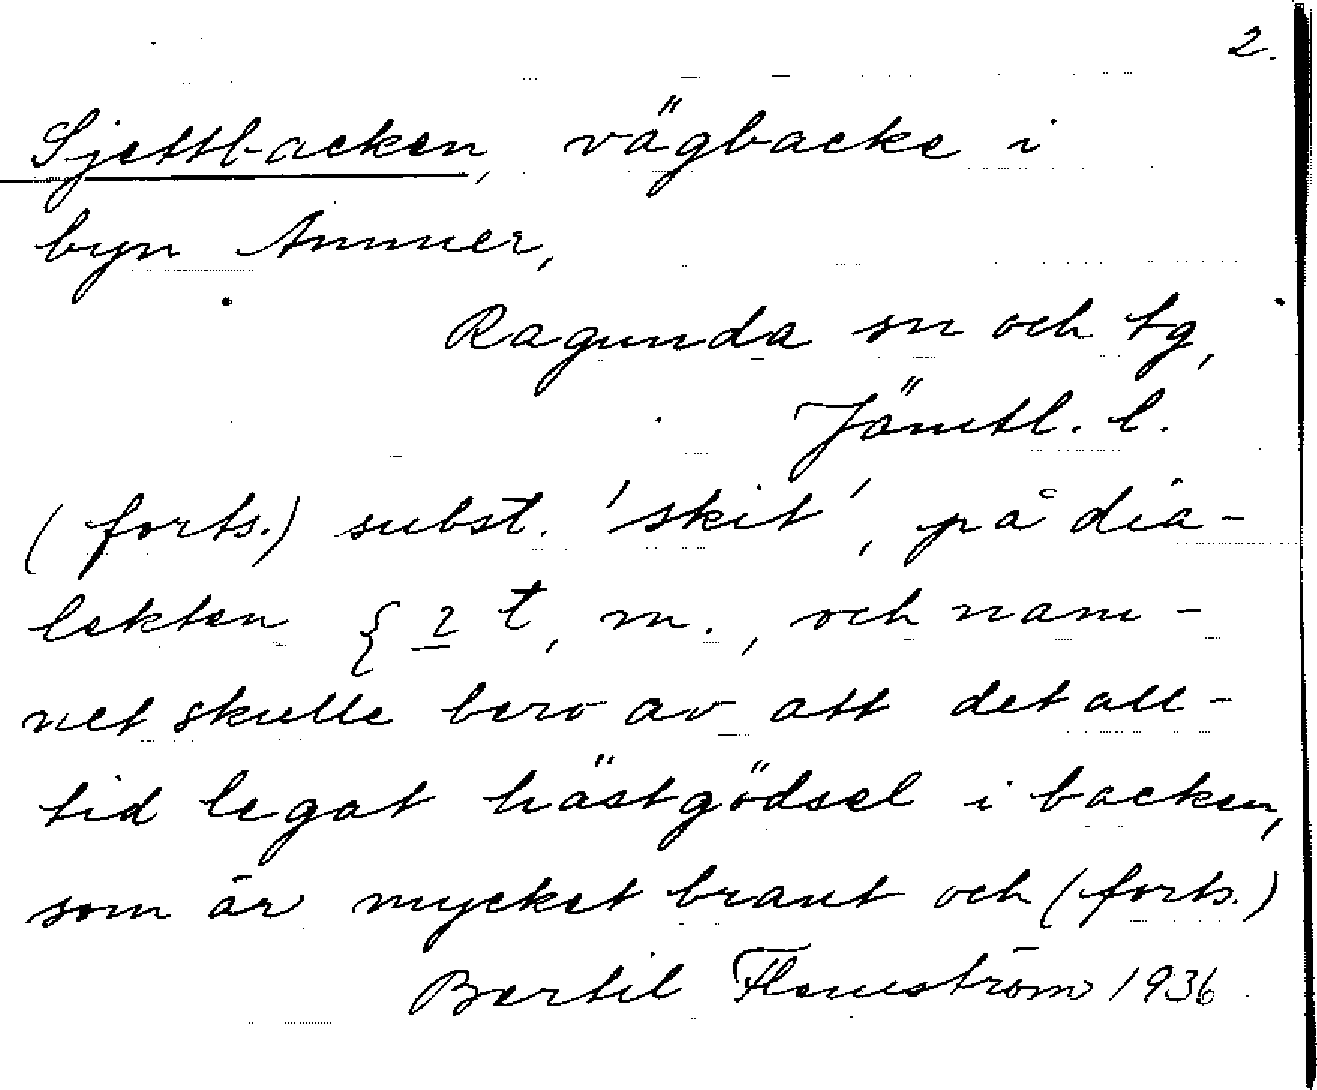 2.
Sjettbacken, vägbacke i
byn Ammer,
Ragunda sn och tg,
Jämtl. l.
(forts.) subst. 'skit', på dia-
lekten m., och nam-
net skulle bero av att det all-
tid legat hästgödsel i backen,
som är mycket brant och (forts.)
Bertil Flemström 1936